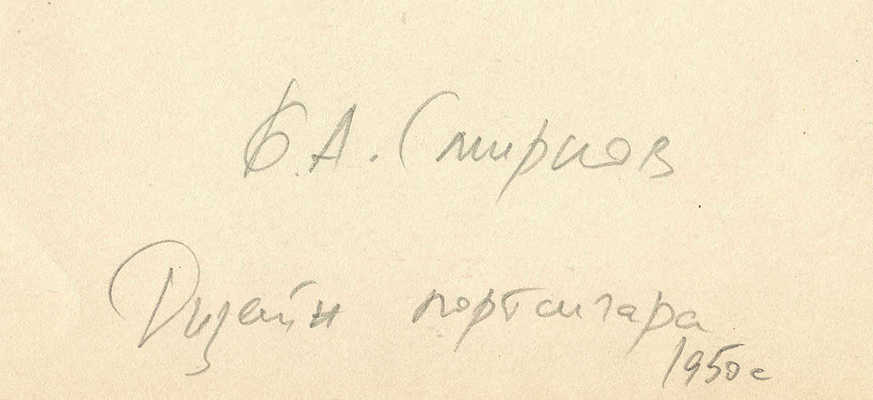 Б.А. Смирнов
Дизайн портсигара
1950е